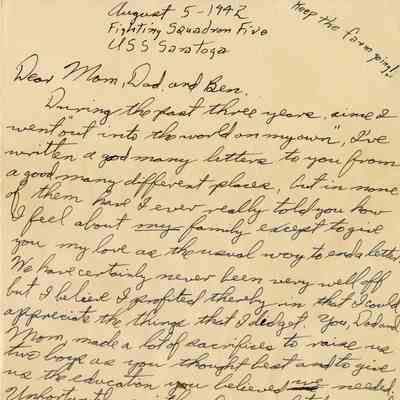 August 5-1942
Fighting Squadron Five
USS Saratoga
Keep the farm going!
Dear Mom, Dad, and Ben,
During the past three years, since I
went "out into the world on my own", I've
written a good many letters to you from
a good many different places, but in none
of them have I ever really told you how
I feel about my family except to give
you my love as the usual way to end a letter.
We have certainly never been very well off
but I believe I profited thereby in that I could
appreciate the things that I did get. You, Dad and
Mom made a lot of sacrifices to raise us
two boys as you thought best and to give
us the education you believed we needed.